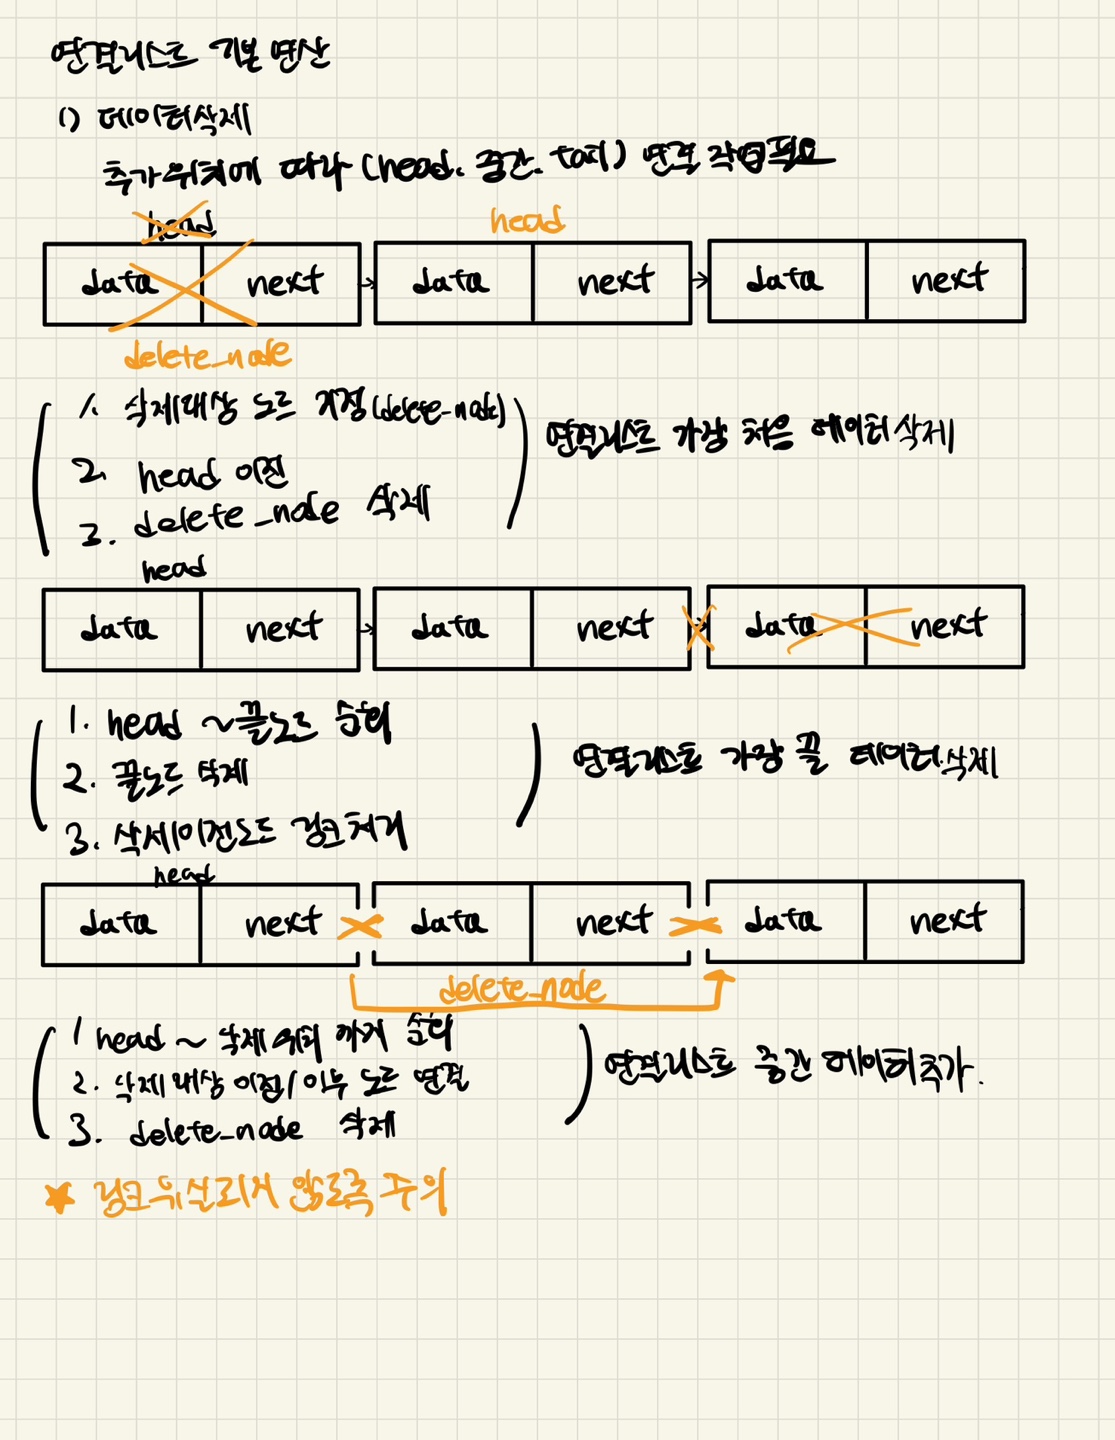 연결리스트 기본 연산
1) 데이터삭제
추가위치에 따라 (head, 중간, tail) 연결 작업필요
head head
data next data next data next
delete_node
1. 삭제대상 노드 지정(delete_node)
2. head 이전
3. delete_node 삭제
연결리스트 가장 처음 데이터삭제
head
data next data next data next
1. head ~ 끝노드 순회
2. 끝노드 삭제
3. 삭제이전노드 링크처리
연결리스트 가장 끝 데이터삭제
head
data next data next data next
delete_node
1 head ~ 삭제 위치 까지 순회
2. 삭제 대상 이전/이후 노드 연결
3. delete_node 삭제
연결리스트 중간 데이터추가.
★ 링크유실되지 않도록 주의